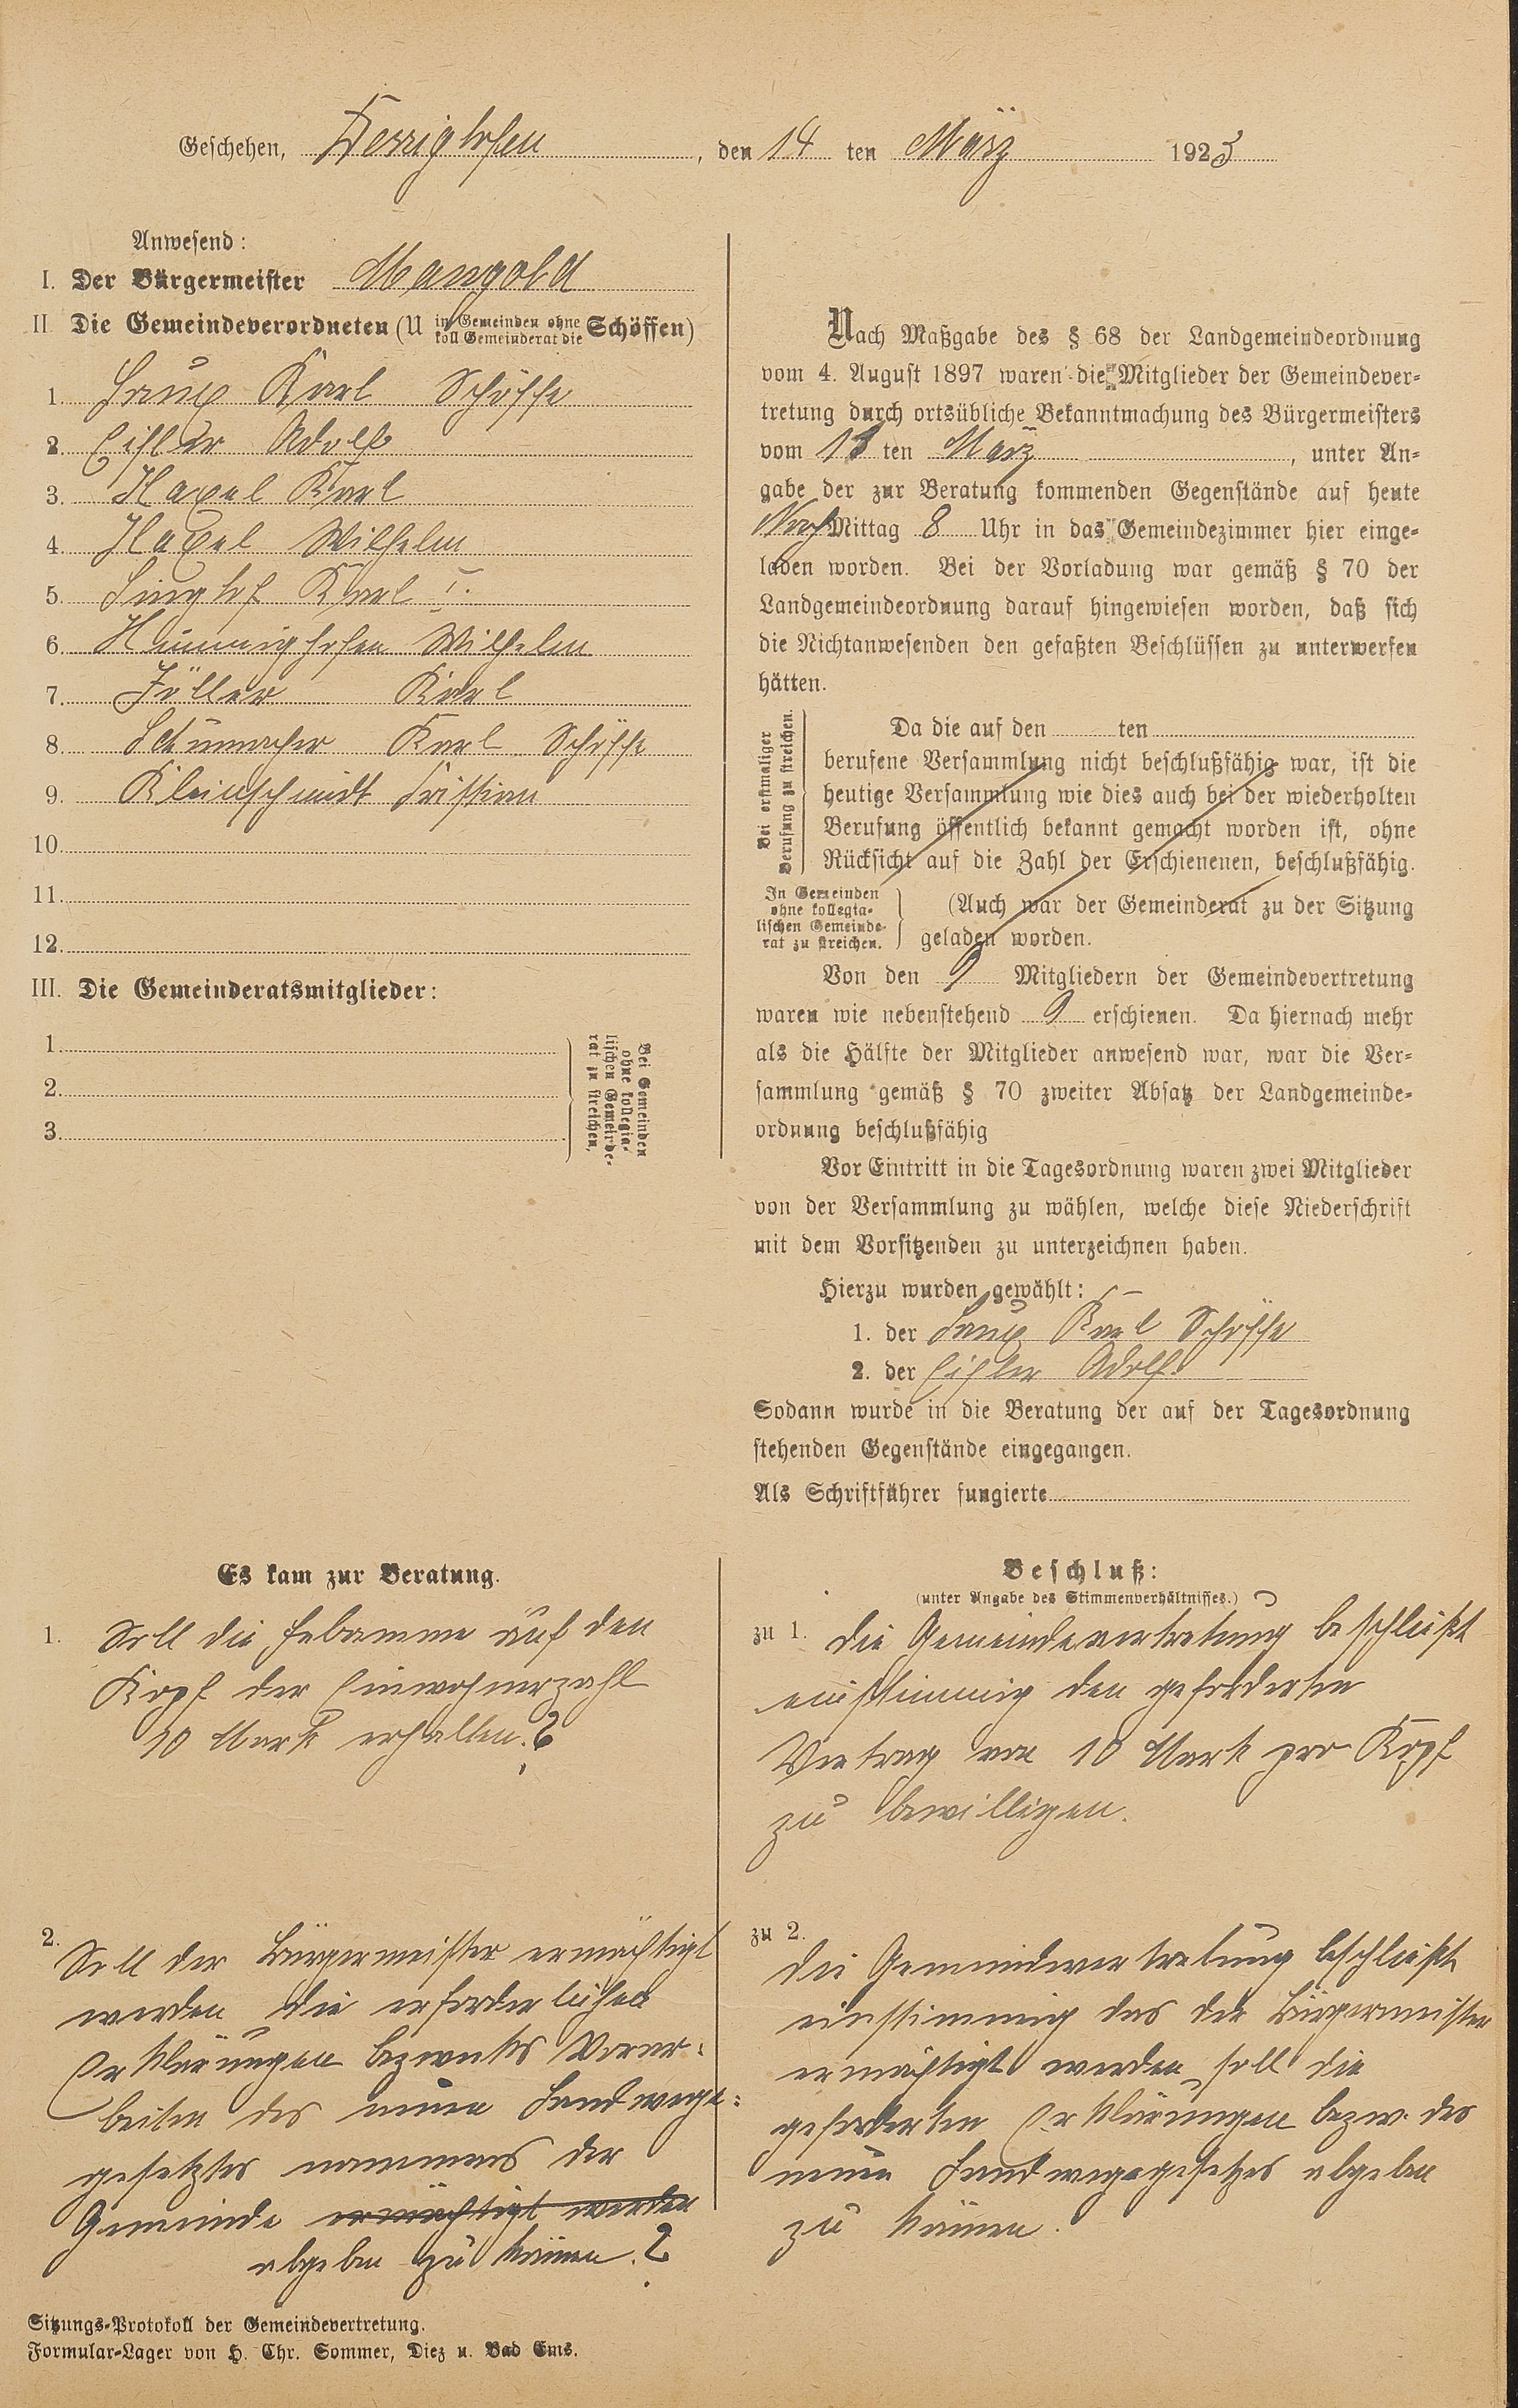 Geschehen, Dessighofen, den 14 ten März 1923
Anwesend:
I. Der Bürgermeister Mangold
II Die Gemeindeverordneten (U in Gemeinden ohne koll Gemeinderat die Schöffen)
1. Karl Schöffe
2. Adolf
3. Karl
4. Wilhelm
5. Singhof Karl I.
6. Hunnighofen Wilhelm
7. Zöller Karl
8. Schumacher Karl Schöffe
9. Kleinschmidt
10.
11.
12.
III. Die Gemeinderatsmitglieder:
1.
2.
3.
Bei Gemeinden
ohne kollegia-
lischen Gemeinde-
rat zu streichen,
Nach Maßgabe des § 68 der Landgemeindeordnung
vom 4. August 1897 waren die Mitglieder der Gemeindever-
tretung durch ortsübliche Bekanntmachung des Bürgermeisters
vom ten März, unter An-
gabe der zur Beratung kommenden Gegenstände auf heute
Nach Mittag 8 Uhr in das Gemeindezimmer hier einge-
laden worden. Bei der Vorladung war gemäß § 70 der
Landgemeindeordnung darauf hingewiesen worden, daß sich
die Nichtanwesenden den gefaßten Beschlüssen zu unterwerfen
hätten.
Bei erstmaliger
Berufung zu streichen.
Da die auf den ten
berufene Versammlung nicht beschlußfähig war, ist die
heutige Versammlung wie dies auch bei der wiederholten
Berufung öffentlich bekannt gemacht worden ist, ohne
Rücksicht auf die Zahl der Erschienenen, beschlußfähig.
In Gemeinden
ohne kollegia-
lischen Gemeinde-
rat zu streichen.
(Auch war der Gemeinderat zu der Sitzung
geladen worden.
Von den 9 Mitgliedern der Gemeindevertretung
waren wie nebenstehend 9 erschienen. Da hiernach mehr
als die Hälfte der Mitglieder anwesend war, war die Ver-
sammlung gemäß § 70 zweiter Absatz der Landgemeinde-
ordnung beschlußfähig
Vor Eintritt in die Tagesordnung waren zwei Mitglieder
von der Versammlung zu wählen, welche diese Niederschrift
mit dem Vorsitzenden zu unterzeichnen haben.
Hierzu wurden gewählt:
1. der Karl Schöffe
2. der Adolf
Sodann wurde in die Beratung der auf der Tagesordnung
stehenden Gegenstände eingegangen.
Als Schriftführer fungierte
Es kam zur Beratung.
1. Soll die Hebamme auf den
Kopf der Einwohnerzahl
10 Mark erhalten.?
2. Soll der Bürgermeister ermächtigt
werden die erforderlichen
Erklärungen bezwecks Vorar-
beiten des neuen Landwege-
gesetztes nammens der
Gemeinde ermächtigt werden
abgeben zu können.?
Beschluß:
(unter Angabe des Stimmenverhältnisses.)
zu 1. Die Gemeindevertretung beschließt
einstimmig den geforderten
von 10 Mark pro Kopf
zu bewilligen.
zu 2. Die Gemeindevertretung beschließt
einstimmig das der Bürgermeister
ermächtigt werden soll die
geforderten Erklärungen bezw. des
neuen Landwegegesetzes abgeben
zu können.
Sitzungs-Protokoll der Gemeindevertretung.
Formular-Lager von H. Chr. Sommer, Diez u. Bad Ems.